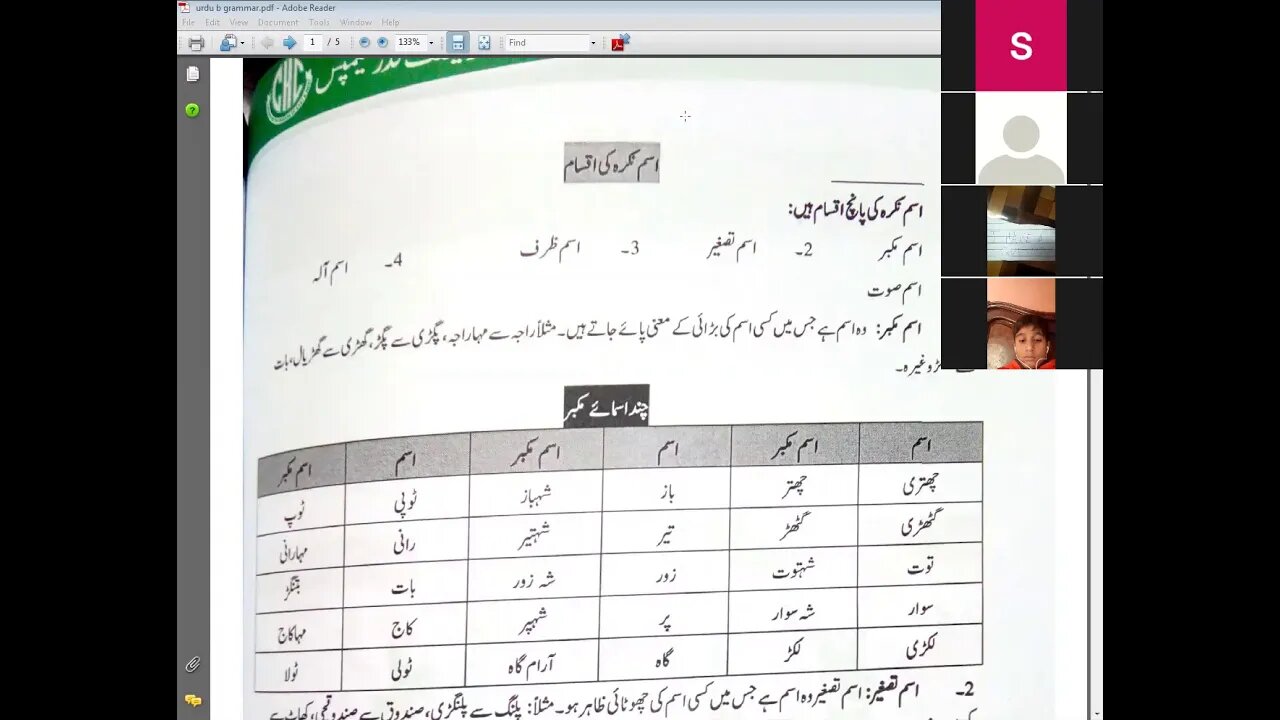 urdu b grammar.pdf - Adobe Reader
File Edit View Document Tools Window Help
1 / 5 133% Find
S
CHC
کیمپس
اسم نکرہ کی اقسام
اسم نکرہ کی پانچ اقسام ہیں:
اسم مکبر 2۔ اسم تصغیر 3۔ اسم ظرف 4۔ اسم آلہ
اسم صوت
اسم مکبر: وہ اسم ہے جس میں کسی اسم کی بڑائی کے معنی پائے جاتے ہیں۔ مثلاً راجہ سے مہاراجہ، پگڑی سے پگڑ، گھڑی سے گھڑیال، بات
وغیرہ۔
چند اسمائے مکبر
اسم اسم مکبر اسم اسم مکبر اسم اسم مکبر
چھتری چھتر باز شہباز ٹوپی ٹوپ
گٹھڑی گٹھڑ تیر شہتیر رانی مہارانی
توت شہتوت زور شہ زور بات بتنگڑ
سوار شہ سوار پر شہپر کاج مہاکاج
لکڑی لکڑ گاہ آرام گاہ ٹولی ٹولا
2۔ اسم تصغیر: اسم تصغیر وہ اسم ہے جس میں کسی اسم کی چھوٹائی ظاہر ہو۔ مثلاً: پلنگ سے پلنگڑی، صندوق سے صندوقچی، کھاٹ سے